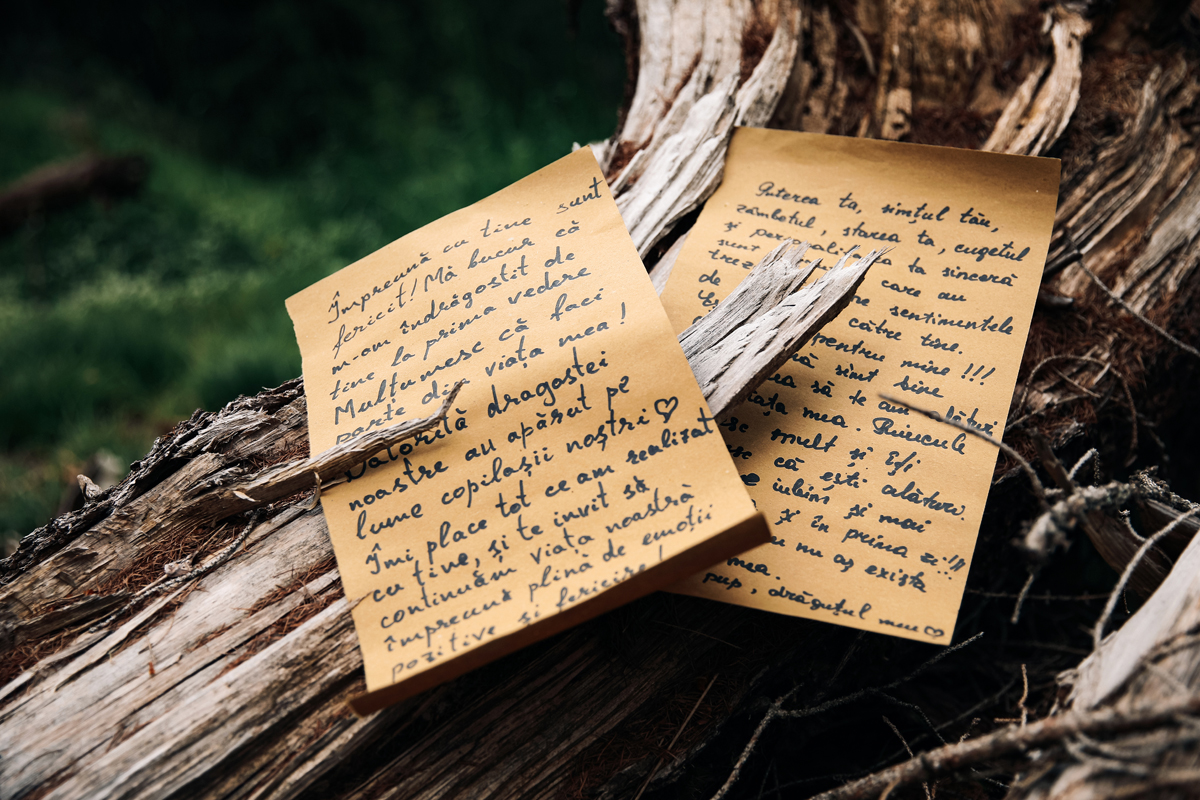 Împreună cu tine sunt
fericit! Mă bucur că
m-am îndrăgostit de
tine la prima vedere
Mulțumesc că faci
parte din viața mea!
Datorită dragostei
noastre au apărut pe
lume copilașii noștri ♡
Îmi place tot ce am realizat
cu tine, și te invit să
continuăm viața noastră
împreună plină de emoții
pozitive și fericire!
Puterea ta, simțul tău,
zâmbetul, starea ta, cugetul
și ta sinceră
sunt care au
trez sentimentele
de către tine.
pentru mine !!!
simt bine
să te am alături
viața mea.
mult și îți
că ești alături.
iubim și mai
și în prima zi!!!
nu aș exista
mea.
pup, drăguțul meu ♡